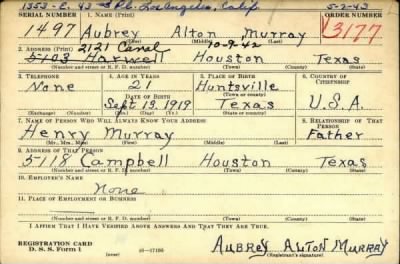 1353-E. 43 rd Pl. Los Angeles, Calif. 5-2-43
SERIAL NUMBER 1. NAME (Print) ORDER NUMBER
1497 Aubrey Alton Murray 13177
(First) (Middle) (Last)
2. ADDRESS (Print) 2121 Canal 10-9-42
5103 Harwell Houston Texas
(Number and street or R. F. D. number) (Town) (County) (State)
3. TELEPHONE 4. AGE IN YEARS 5. PLACE OF BIRTH 6. COUNTRY OF CITIZENSHIP
None 21 Huntsville
DATE OF BIRTH (Town or county)
Sept 13 1919 Texas U.S.A.
(Exchange) (No.) (Mo.) (Day) (Yr.) (State or country)
7. NAME OF PERSON WHO WILL ALWAYS KNOW YOUR ADDRESS 8. RELATIONSHIP OF THAT PERSON
Henry Murray Father
(Mr., Mrs., Miss) (First) (Middle) (Last)
9. ADDRESS OF THAT PERSON
5118 Campbell Houston Texas
(Number and street or R. F. D. number) (Town) (County) (State)
10. EMPLOYER'S NAME
None
11. PLACE OF EMPLOYMENT OR BUSINESS
(Number and street or R. F. D. number) (Town) (County) (State)
I AFFIRM THAT I HAVE VERIFIED ABOVE ANSWERS AND THAT THEY ARE TRUE.
REGISTRATION CARD
D. S. S. Form 1 (over) 16-17105 Aubrey Alton Murray
(Registrant's signature)